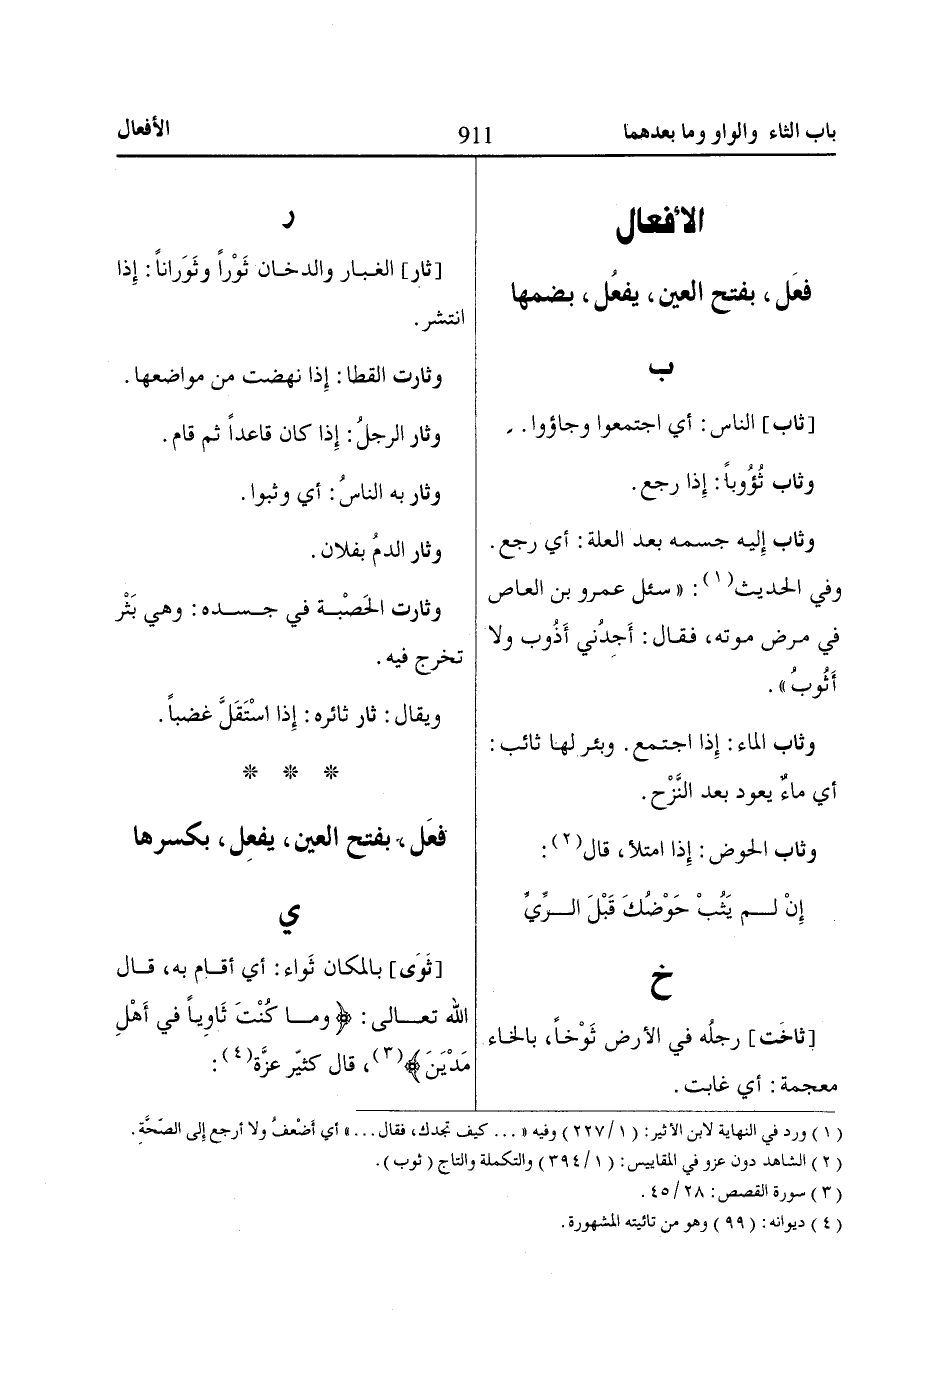 باب الثاء والواو وما بعدهما
911
الأفعال
الأفعال
فعَل، بفتح العين، يفعُل، بضمها
ب
[ثاب] الناس: أي اجتمعوا وجاؤوا.
وثاب ثُؤُوباً: إذا رجع.
وثاب إليه جسمه بعد العلة: أي رجع.
وفي الحديث(١): «سئل عمرو بن العاص
في مرض موته، فقال: أَجِدُني أَذُوب ولا
أَثُوبُ».
وثاب الماء: إذا اجتمع. وبئر لها ثائب:
أي ماءٌ يعود بعد النَّزْح.
وثاب الحوض: إذا امتلأ، قال(٢):
إنْ لـــم يَثُبْ حَوْضُكَ قَبْلَ الــرِّيِّ
خ
[ثاخَت] رجلُه في الأرض ثَوْخاً، بالخاء
معجمة: أي غابت.
ر
[ثار] الغبار والدخان ثَوْراً وثَوَراناً: إذا
انتشر.
وثارت القطا: إذا نهضت من مواضعها.
وثار الرجلُ: إذا كان قاعداً ثم قام.
وثار به الناسُ: أي وثبوا.
وثار الدمُ بفلان.
وثارت الحَصْبة في جسده: وهي بَثْر
تخرج فيه.
ويقال: ثار ثائره: إذا اسْتَقَلَّ غضباً.
* * *
فعَل، بفتح العين، يفعِل، بكسرها
ي
[ثَوَى] بالمكان ثَواء: أي أقام به، قال
الله تعالى: ﴿وما كُنْتَ ثَاوِياً في أَهْلِ
مَدْيَنَ﴾(٣)، قال كثيّر عزَّة(٤):
(١) ورد في النهاية لابن الأثير: (١/٢٢٧) وفيه «... كيف تجدك، فقال...» أي أضْعفُ ولا أرجع إلى الصّحَّة.
(٢) الشاهد دون عزو في المقاييس: (١/٣٩٤) والتكملة والتاج (ثوب).
(٣) سورة القصص: ٢٨/٤٥.
(٤) ديوانه: (٩٩) وهو من تائيته المشهورة.